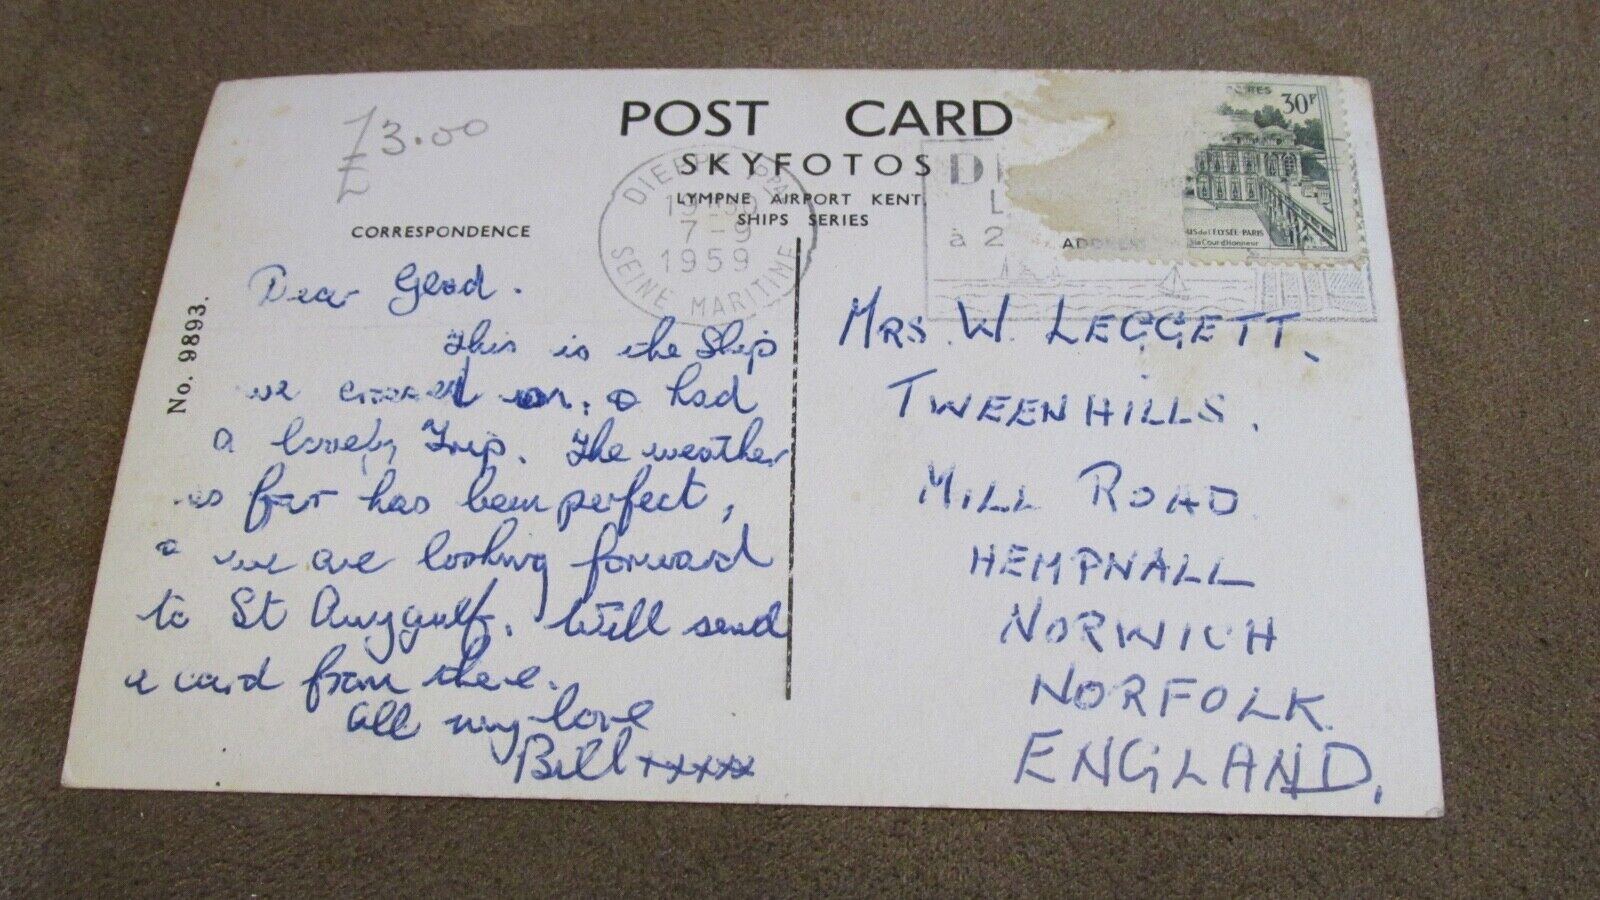 £3.00
POST CARD
SKYFOTOS
LYMPNE AIRPORT KENT.
SHIPS SERIES
CORRESPONDENCE
No. 9893.
DIEPPE
19
7-9
1959
SEINE MARITIME
D
L
à 2
30F
DE L'ELYSÉE-PARIS
la Cour d'Honneur
Dear Glad.
This is the Ship
we crossed on. & had
a lovely Trip. The weather
as far has been perfect,
& we are looking forward
to St Auygulf. Will send
a card from there.
All my love
Bill xxxxx
MRS. W. LEGGETT.
TWEENHILLS.
MILL ROAD
HEMPNALL
NORWICH
NORFOLK
ENGLAND.